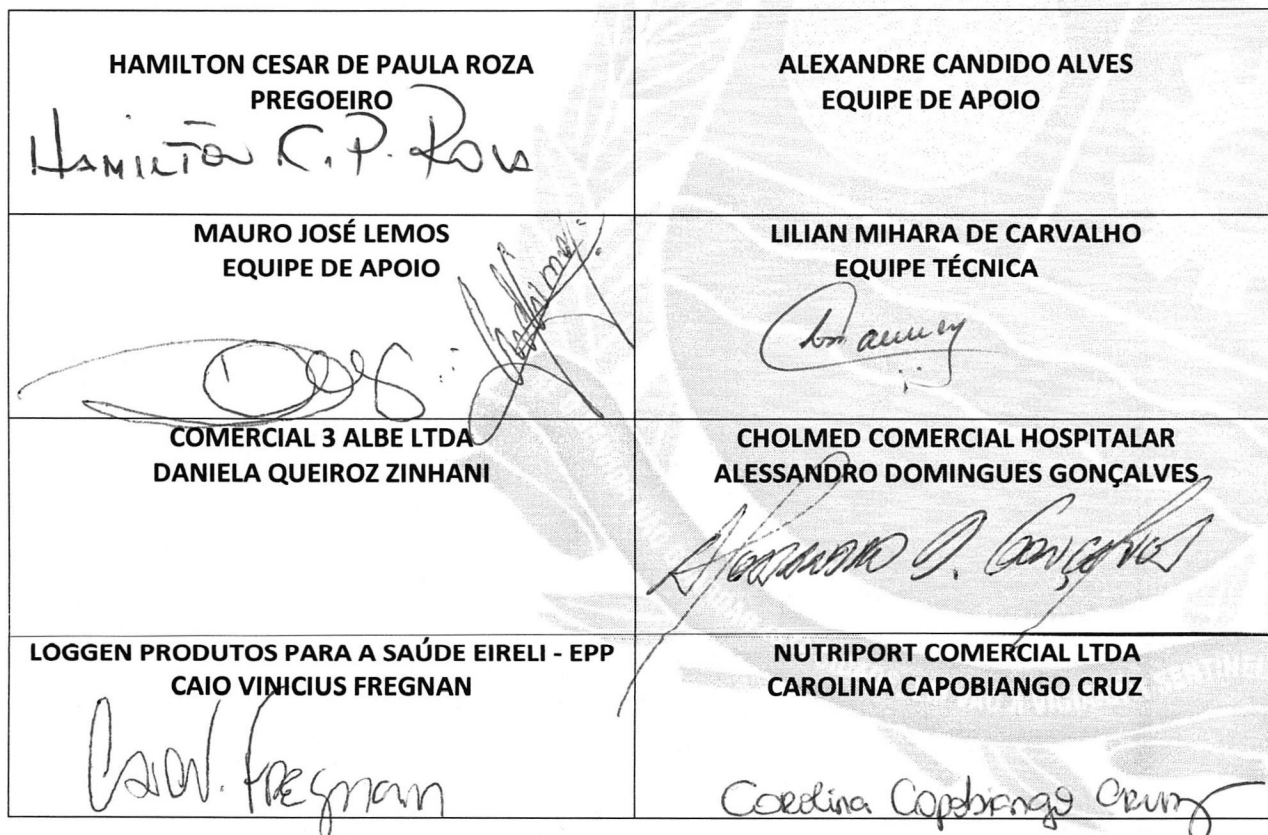 HAMILTON CESAR DE PAULA ROZA
PREGOEIRO
HAMILTON C. P. ROZA
ALEXANDRE CANDIDO ALVES
EQUIPE DE APOIO
MAURO JOSÉ LEMOS
EQUIPE DE APOIO
LILIAN MIHARA DE CARVALHO
EQUIPE TÉCNICA
COMERCIAL 3 ALBE LTDA
DANIELA QUEIROZ ZINHANI
CHOLMED COMERCIAL HOSPITALAR
ALESSANDRO DOMINGUES GONÇALVES
Alessandro D. Gonçalves
LOGGEN PRODUTOS PARA A SAÚDE EIRELI - EPP
CAIO VINICIUS FREGNAN
Caio V. Fregnan
NUTRIPORT COMERCIAL LTDA
CAROLINA CAPOBIANGO CRUZ
Carolina Capobiango Cruz